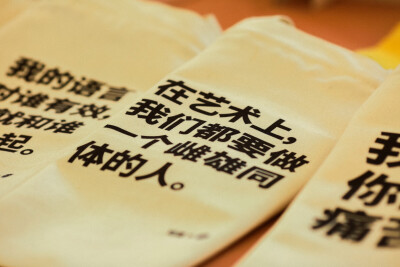 我的语言
对谁有效,
就和谁
起。
在艺术上,
我们都要做
一个雌雄同
体的人。
我
你
痛苦